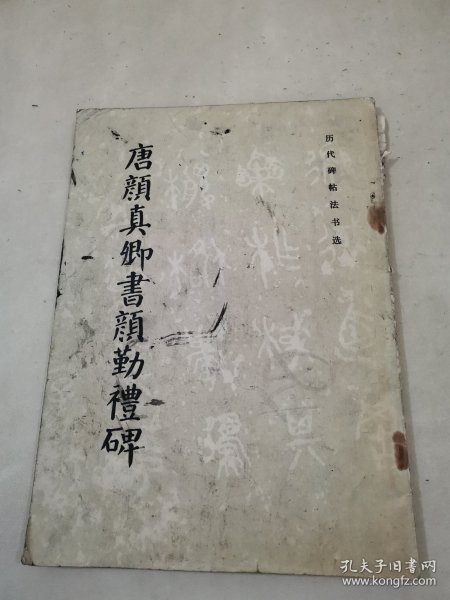 历代碑帖法书选
唐顔真卿書顔勤禮碑
孔夫子旧书网
www.kongfz.com